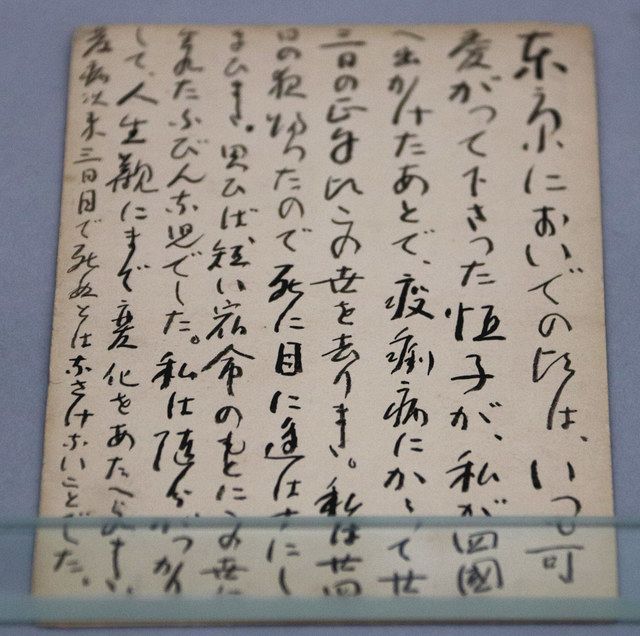 东京においでの頃は、いつも可
愛がって下さった恒子が、私が四國
へ出かけたあとで、疫痢病にかゝって廿
三日の正午頃この世を去りました。私は廿四
日の夜帰ったので死に目に逢はずにし
まひました。思へば、短い宿命のもとにこの世に
生れたふびんな児でした。私は随分がつかり
して、人生観にまで変化をあたへられました。
発病以来三日目で死ぬとはなさけないことでした。